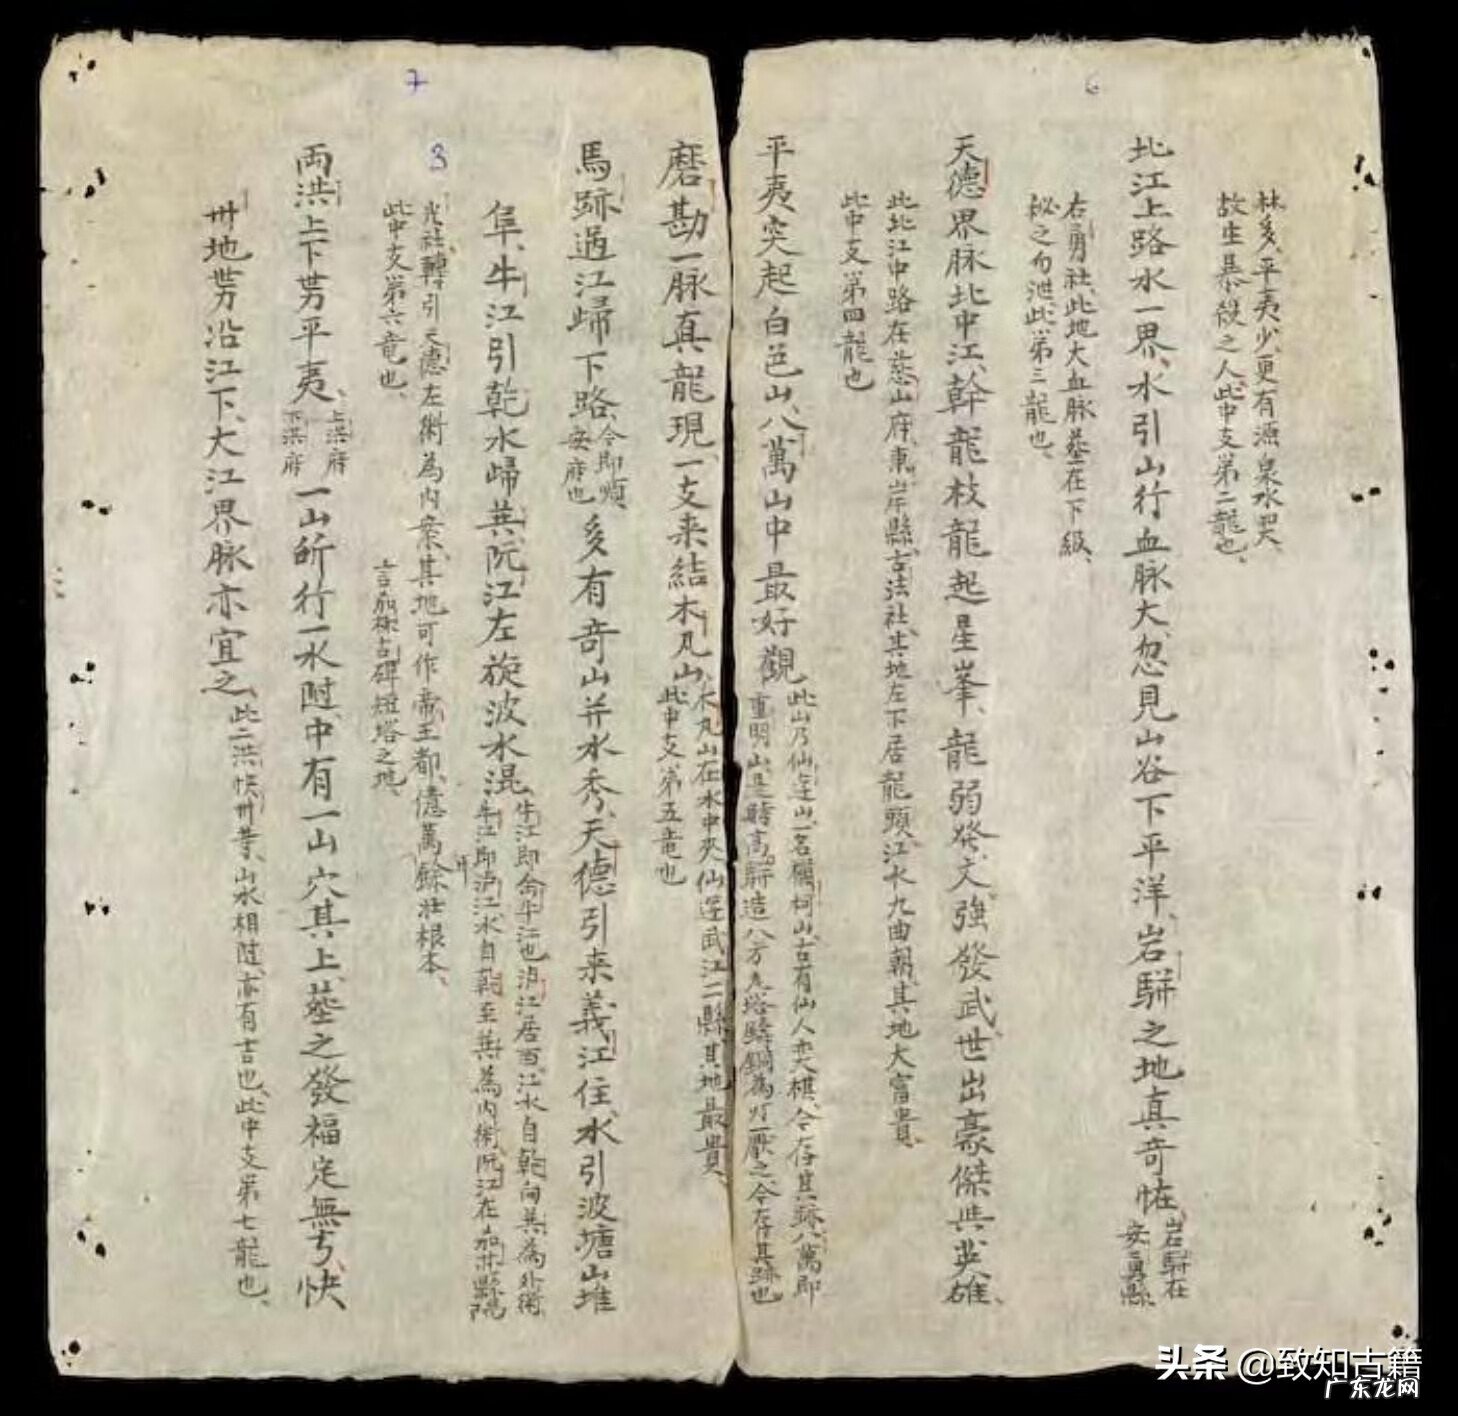 6
林多、平夷少、更有源泉水異、
故生暴殺之人、此中支第二龍也、
北江上路水一界、水引山行血脉大、忽見山谷下平洋、岩駢之地真奇怪
岩駢在
安勇縣
右勇社、此地大血脉、塟在下級、
秘之勿泄、此第三龍也、
天德界脉北中江、幹龍枝龍起星峯、龍弱發文、強發武、世出豪傑與英雄、
此北江中路在慈山府、東岸縣、古法社、其地左下居龍頭、江水九曲朝、其地大富貴、
此中支第四龍也
平夷突起白邑山、八萬山中最好觀
此山乃仙遊山、一名爛柯山、古有仙人奕棋、今存其跡、八萬即
重明山、是時高駢造八方九塔、鑄銅為 厭之、今存其跡也
7
磨勘一脉真龍現、一支来結木凡山
木凡山在水中夾仙遊武江二縣、其地最貴、
此中支第五竜也
馬跡過江歸下路、
今即順
安府也
多有奇山并水秀、天德引来義江住、水引波塘山堆
阜、牛江引乾水歸巽、阮江左旋波水混、
牛江即 牛江也、 江居西、江水自乾向巽為外衛
牛江即 江水自乾至巽為内衛、阮江在嘉林縣阮
3
光社、轉引天德左衛為内案、其地可作帝王都、億萬餘 壯根本、
此中支第六竜也、
言 古碑短塔之地、
両洪上下勢平夷、
上洪府
下洪府
一山所行一水隨、中有一山穴其上、塟之發福定無亐、快
卅地勢沿江下、大江界脉亦宜之、
此二洪、快卅等、山水相隨、亦有吉也、此中支第七龍也、
头条 @致知古籍
广东龙网